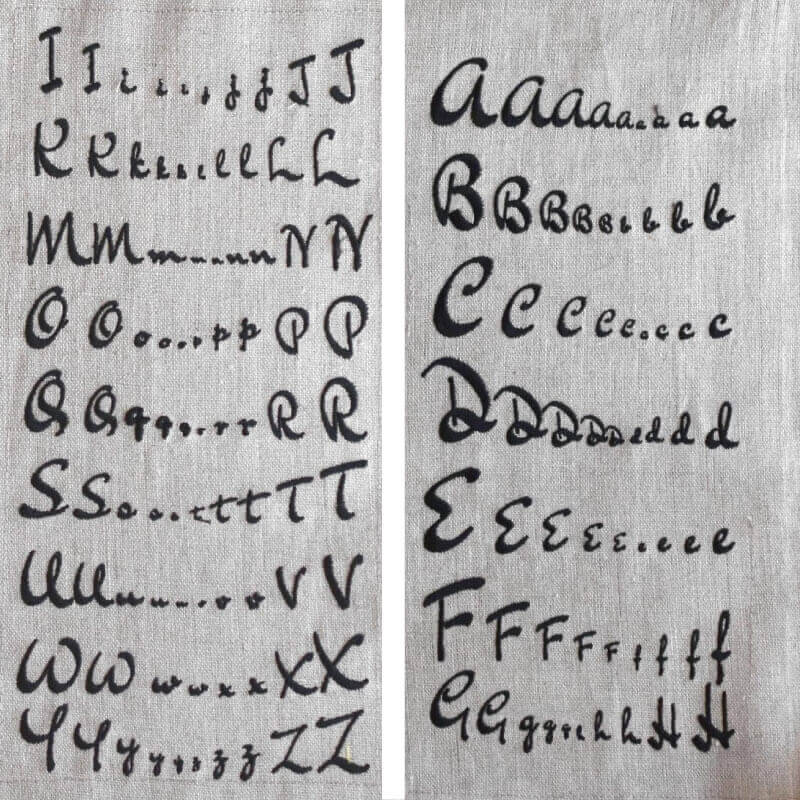 I I i i i j j j J J
K K k k k l l l L L
M M m m m n n n N N
O O o o o p p p P P
Q Q q q q r r r R R
S S s s s t t t T T
U U u u u v v v V V
W W w w x x X X
Y Y y y y z z z Z Z
A A A A A a a a a a
B B B B B b b b b
C C C C C c c c c
D D D D D d d d d
E E E E E e e e e
F F F F F f f f f
G G g g g h h h H H